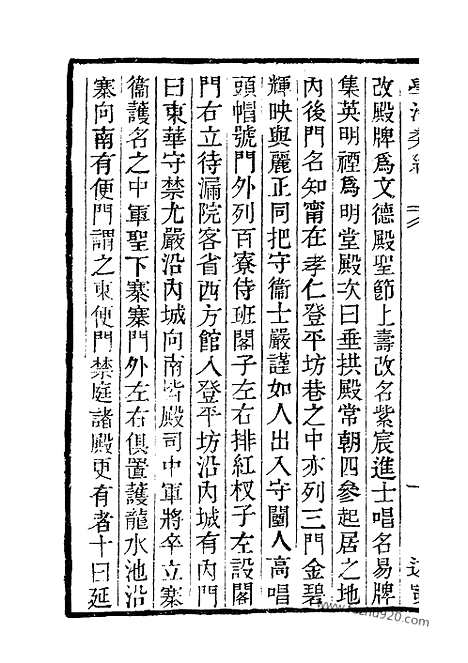 改殿牌爲文德殿聖節上壽改名紫宸進士唱名易牌
集英明禋爲明堂殿次曰垂拱殿常朝四參起居之地
內後門名和甯在孝仁登平坊巷之中亦列三門金碧
輝映與麗正同把守衞士嚴謹如人出入守闉人高唱
頭帽號門外列百寮侍班閣子左右排紅杈子左設閣
門右立待漏院客省西方館入登平坊沿內城有內門
曰東華守禁尤嚴沿內城向南皆殿司中軍將卒立寨
衞護名之中軍聖下寨寨門外左右俱置護龍水池沿
寨向南有便門謂之東便門禁庭諸殿更有者十曰延